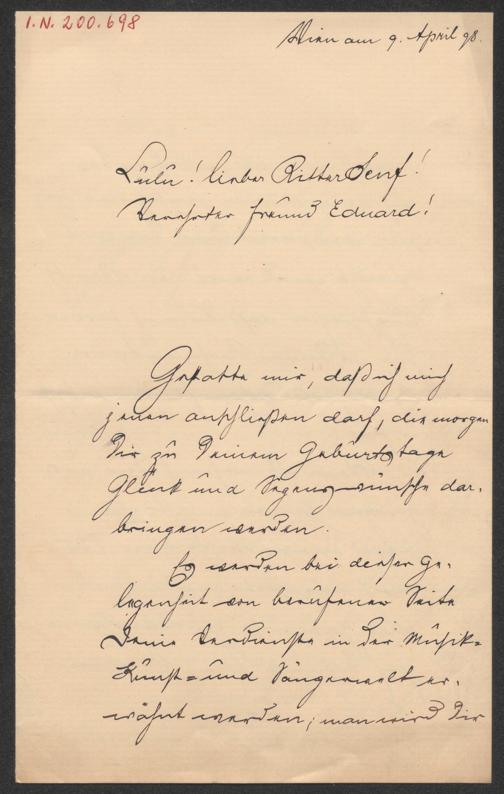 I.N. 200.698
Wien am 9. April 98.
Lulu! lieber Ritter Senf!
Verehrter Freund Eduard!
Gestatte mir, daß ich mich
jenen anschließen darf, die morgen
Dir zu Deinem Geburtstage
Glück und Segenswünsche dar-
bringen werden.
Es werden bei dieser Ge-
legenheit von berufener Seite
Deine Verdienste in der Musik-
Kunst- und Sängerwelt er-
wähnt werden; man wird Dir